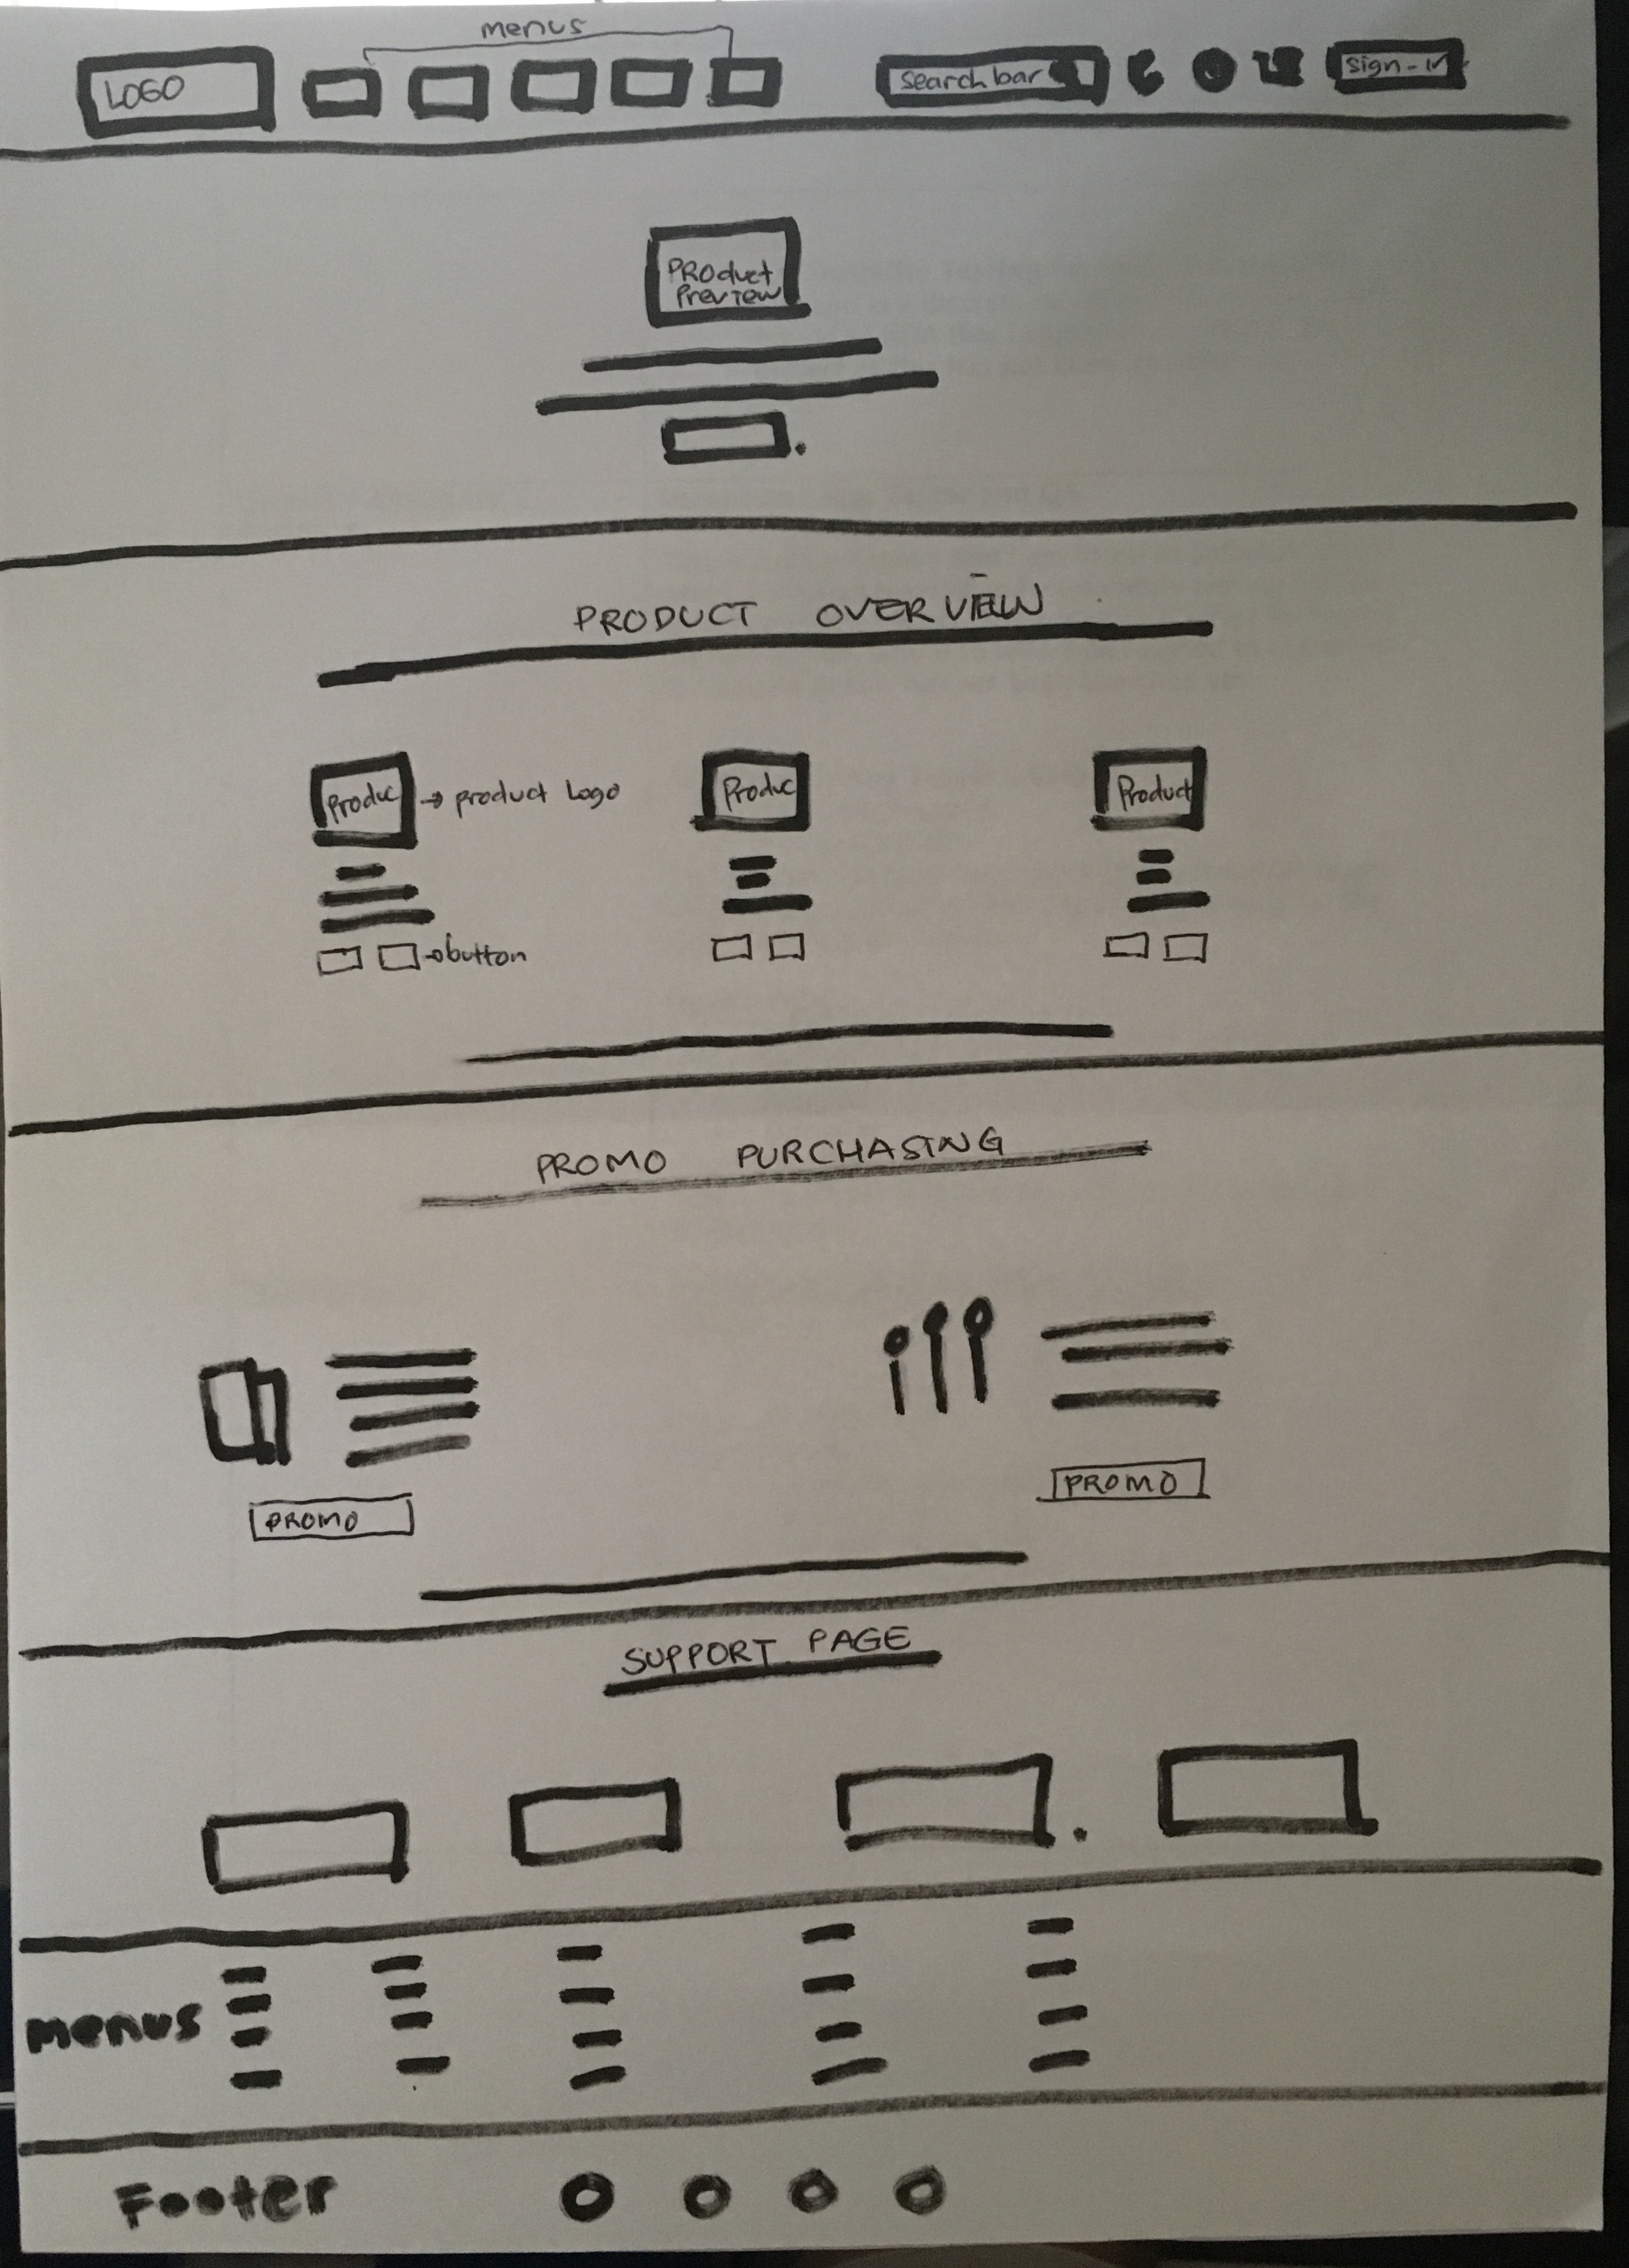 menus
LOGO
Search bar
Sign-in
PRODuct
Preview
PRODUCT OVERVIEW
Produc
→ product Logo
Produc
Product
→button
PROMO PURCHASING
PROMO
PROMO
SUPPORT PAGE
menus
Footer